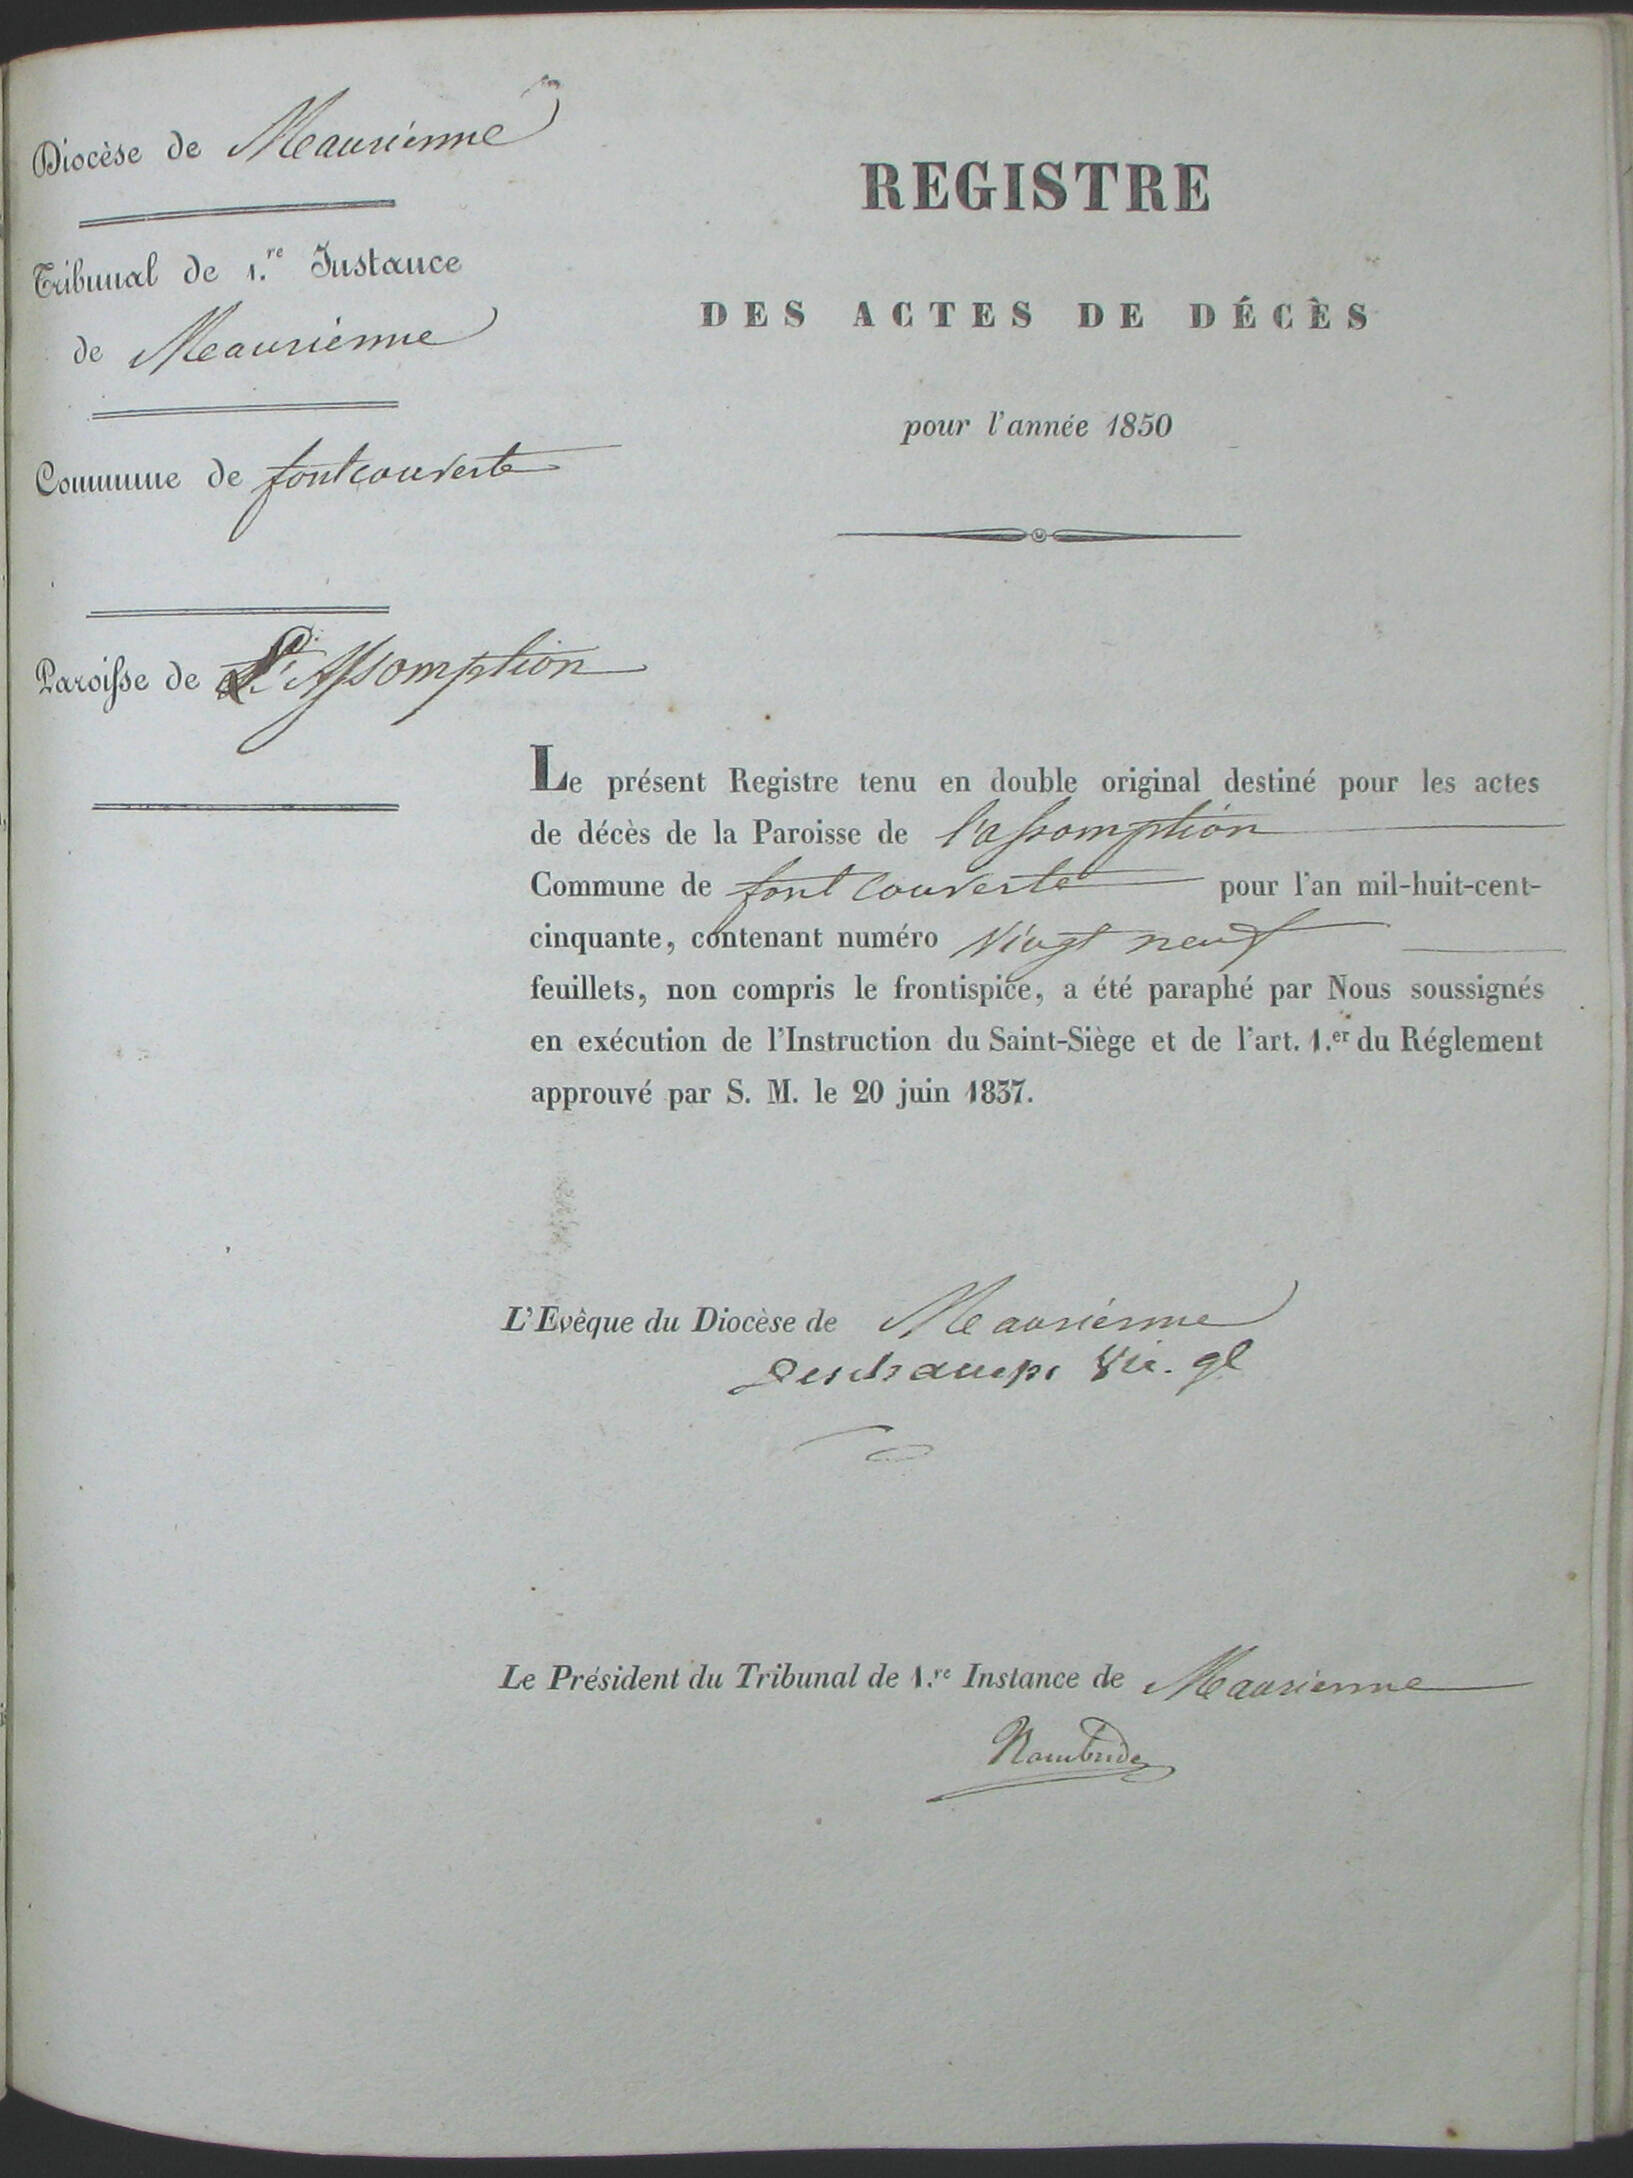 Diocèse de Maurienne
Tribunal de 1.re Instance
de Maurienne
Commune de fontcouverte
Paroisse de L'Assomption
REGISTRE
DES ACTES DE DÉCÈS
pour l'année 1850
Le présent Registre tenu en double original destiné pour les actes
de décès de la Paroisse de l'assomption
Commune de font couverte pour l'an mil-huit-cent-
cinquante, contenant numéro vingt neuf
feuillets, non compris le frontispice, a été paraphé par Nous soussignés
en exécution de l'Instruction du Saint-Siège et de l'art. 1.er du Réglement
approuvé par S. M. le 20 juin 1837.
L'Evêque du Diocèse de Maurienne
Deschamps Vic. gl
Le Président du Tribunal de 1.re Instance de Maurienne